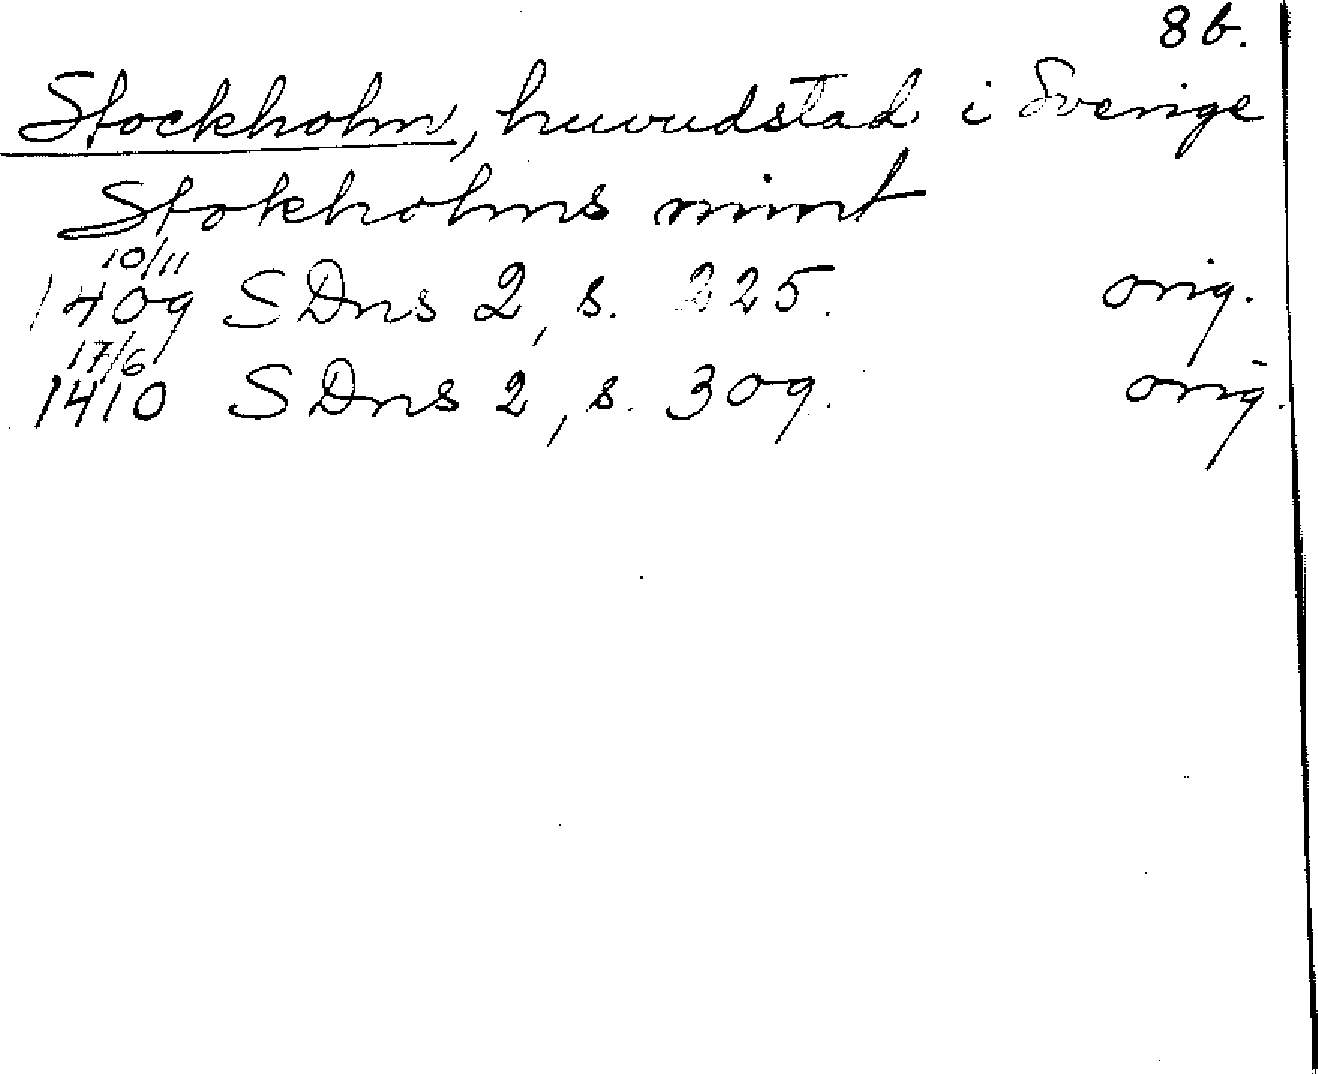 8 b.
Stockholm, huvudstad i Sverige
Stokholms mint
10/11
1409 SDns 2, s. 225. orig.
17/6
1410 SDns 2, s. 309. orig.